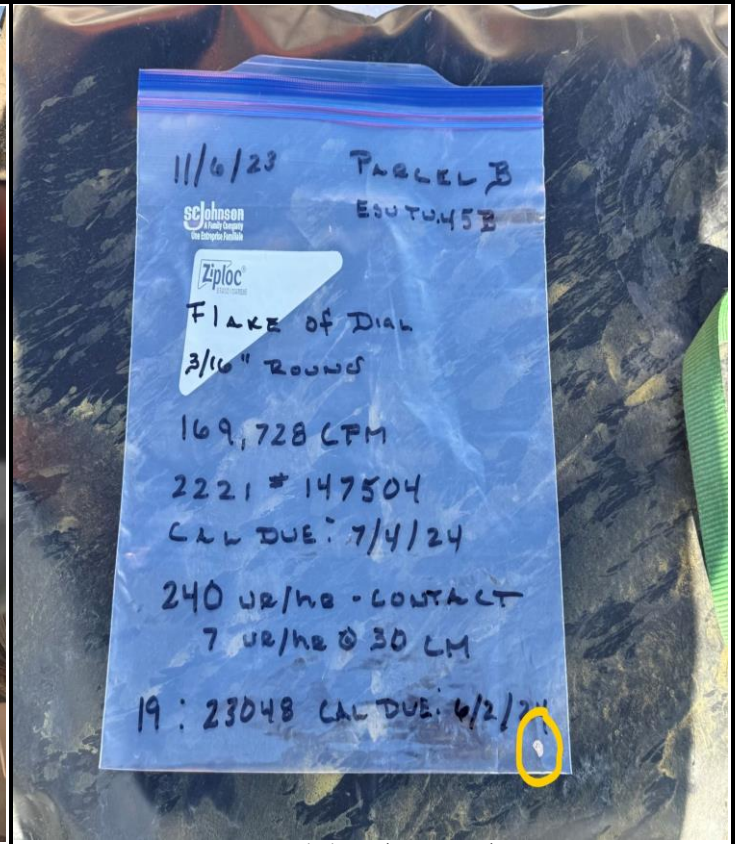 11/6/23 PARCEL B
ESU TU.45B
SCJohnson
A Family Company
Une Entreprise Familiale
Ziploc®
FLAKE OF DIAL
3/16" ROUND
169,728 CPM
2221 # 147504
CAL DUE: 7/4/24
240 UR/HR - CONTACT
7 UR/HR @ 30 CM
19 : 23048 CAL DUE: 6/2/24